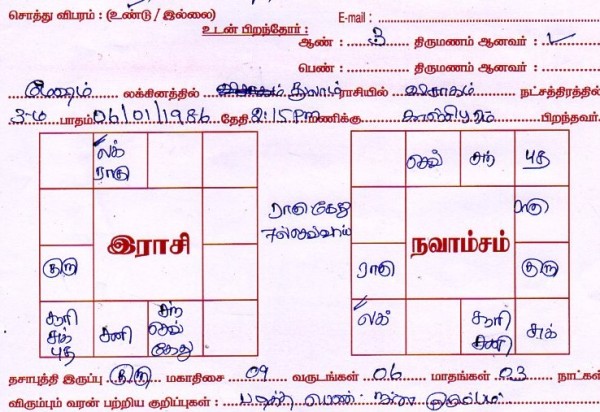 சொத்து விபரம் : (உண்டு / இல்லை) E-mail :
உடன் பிறந்தோர் :
ஆண் : 3 திருமணம் ஆனவர் : ✓
பெண் : திருமணம் ஆனவர் :
லக்கினத்தில் துலாம் ராசியில் விசாகம் நட்சத்திரத்தில்
3-ம் பாதம் 06/01/1986 தேதி 2:15 PM மணிக்கு காஞ்சிபுரம் பிறந்தவர்.
லக் செவ் சந் புத
ராகு
ராகு கேது
7ல் செவ்வாய்
இராசி நவாம்சம்
குரு ராகு குரு
சூரி சனி சந் லக் சூரி சுக்
சுக் செவ் சனி
புத கேது
தசாபுத்தி இருப்பு குரு மகாதிசை 09 வருடங்கள் 06 மாதங்கள் 03 நாட்கள்
விரும்பும் வரன் பற்றிய குறிப்புகள் : படித்த பெண். நல்ல குடும்பம்